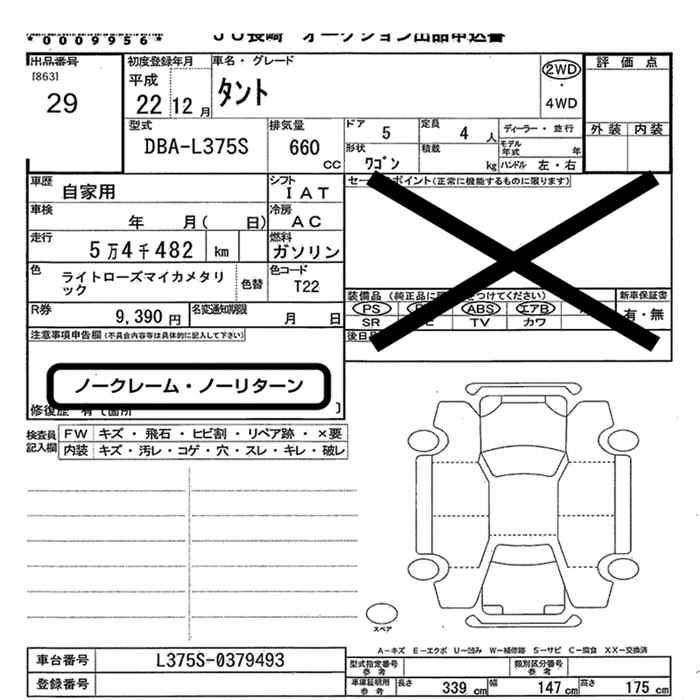 *0009956* ＪＵ長崎 オークション出品申込書
出品番号 初度登録年月 車名・グレード 評価点
[863] 平成 タント 2WD
29 22 12月 ・
4WD
型式 排気量 ドア 5 定員 4人 ディーラー・並行 外装 内装
DBA-L375S 660 CC 形状 ワゴン 積載 kg モデル年式 年
ハンドル 左・右
車歴 自家用 シフト IAT セールスポイント(正常に機能するものに限ります)
車検 年 月( 日) 冷房 AC
走行 5万4千482 km 燃料 ガソリン
色 ライトローズマイカメタリック 色替 色コード T22
装備品(純正品に つけてください) 新車保証書
R券 9,390円 名変通知期限 月 日 PS ABS エアB 有・無
SR TV カワ
注意事項申告欄(不具合内容等は具体的に記入して下さい) 後日
ノークレーム・ノーリターン
修復歴 有て箇所
検査員記入欄 FW キズ・飛石・ヒビ割・リペア跡・×要
内装 キズ・汚レ・コゲ・穴・スレ・キレ・破レ
スペア
A－キズ E－エクボ U－凹み W－補修跡 S－サビ C－腐食 XX－交換済
車台番号 L375S-0379493 型式指定番号 参考 類別区分番号 参考
登録番号 車庫証明用 参考 長さ 339cm 幅 147cm 高さ 175cm